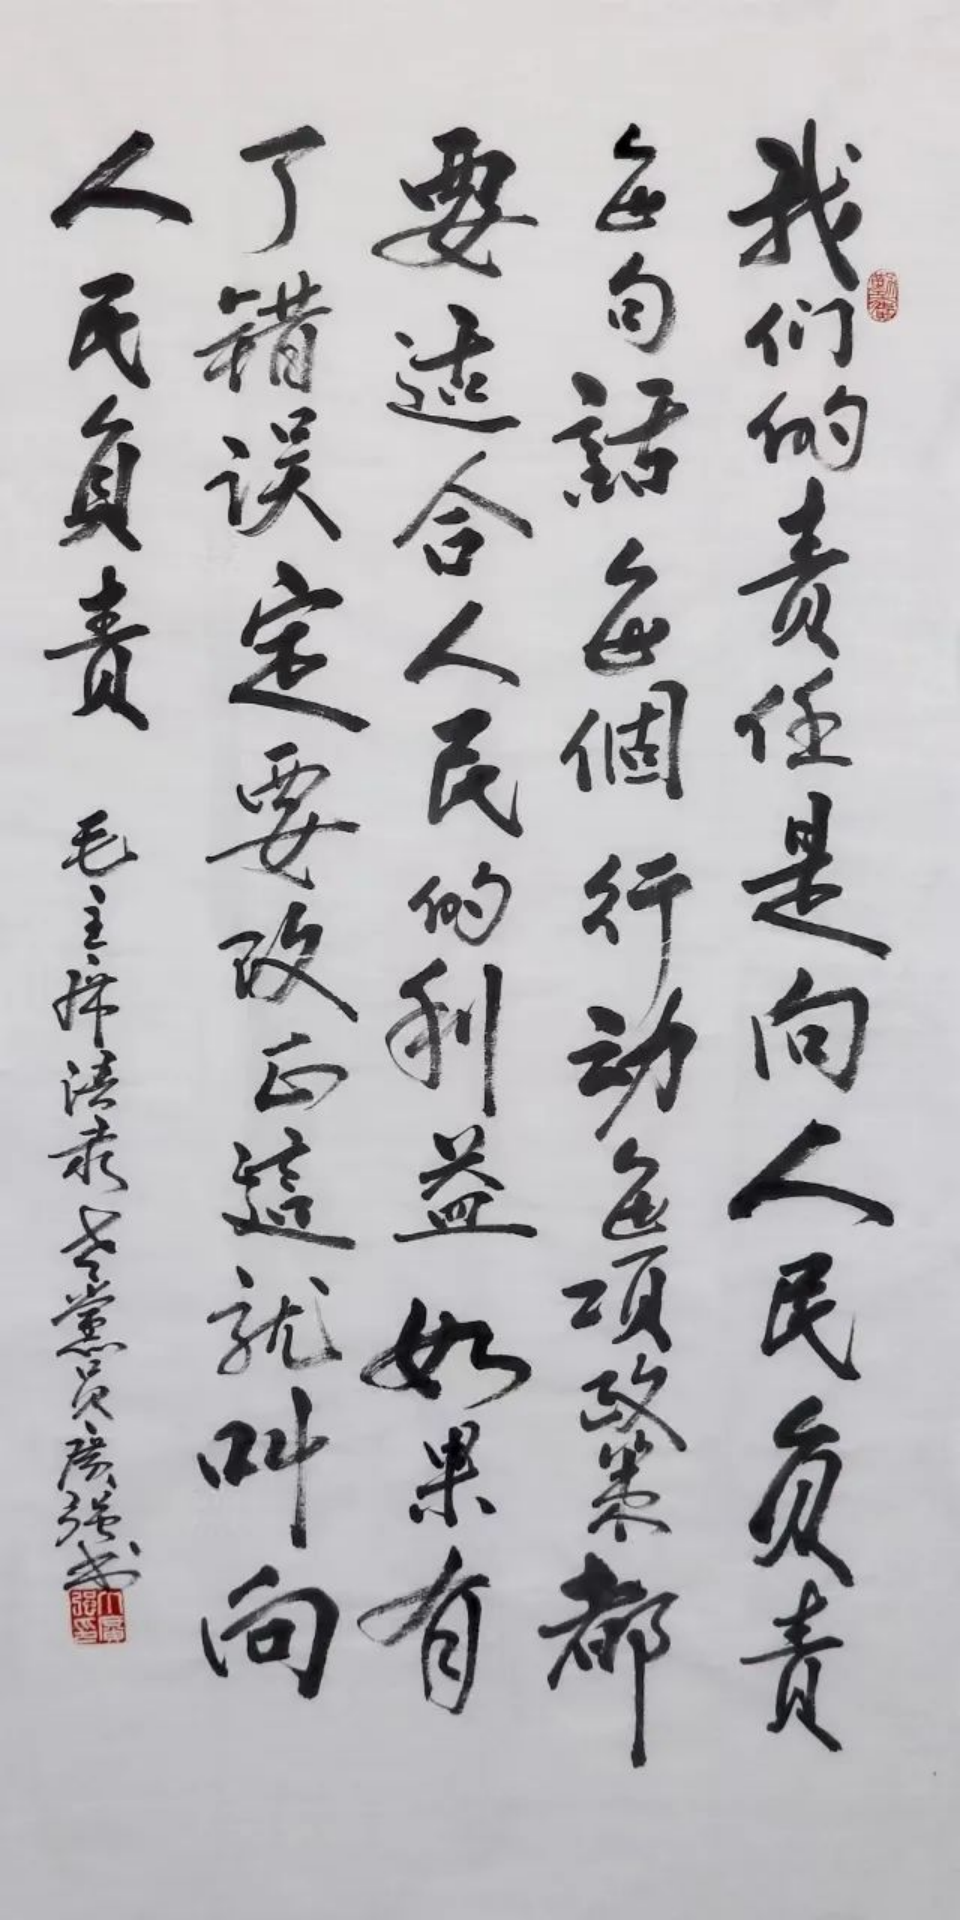 我们的责任是向人民负责
每句話每個行动每项政策都
要适合人民的利益如果有
了错误定要改正這就叫向
人民负责
毛主席语录老黨员广强书